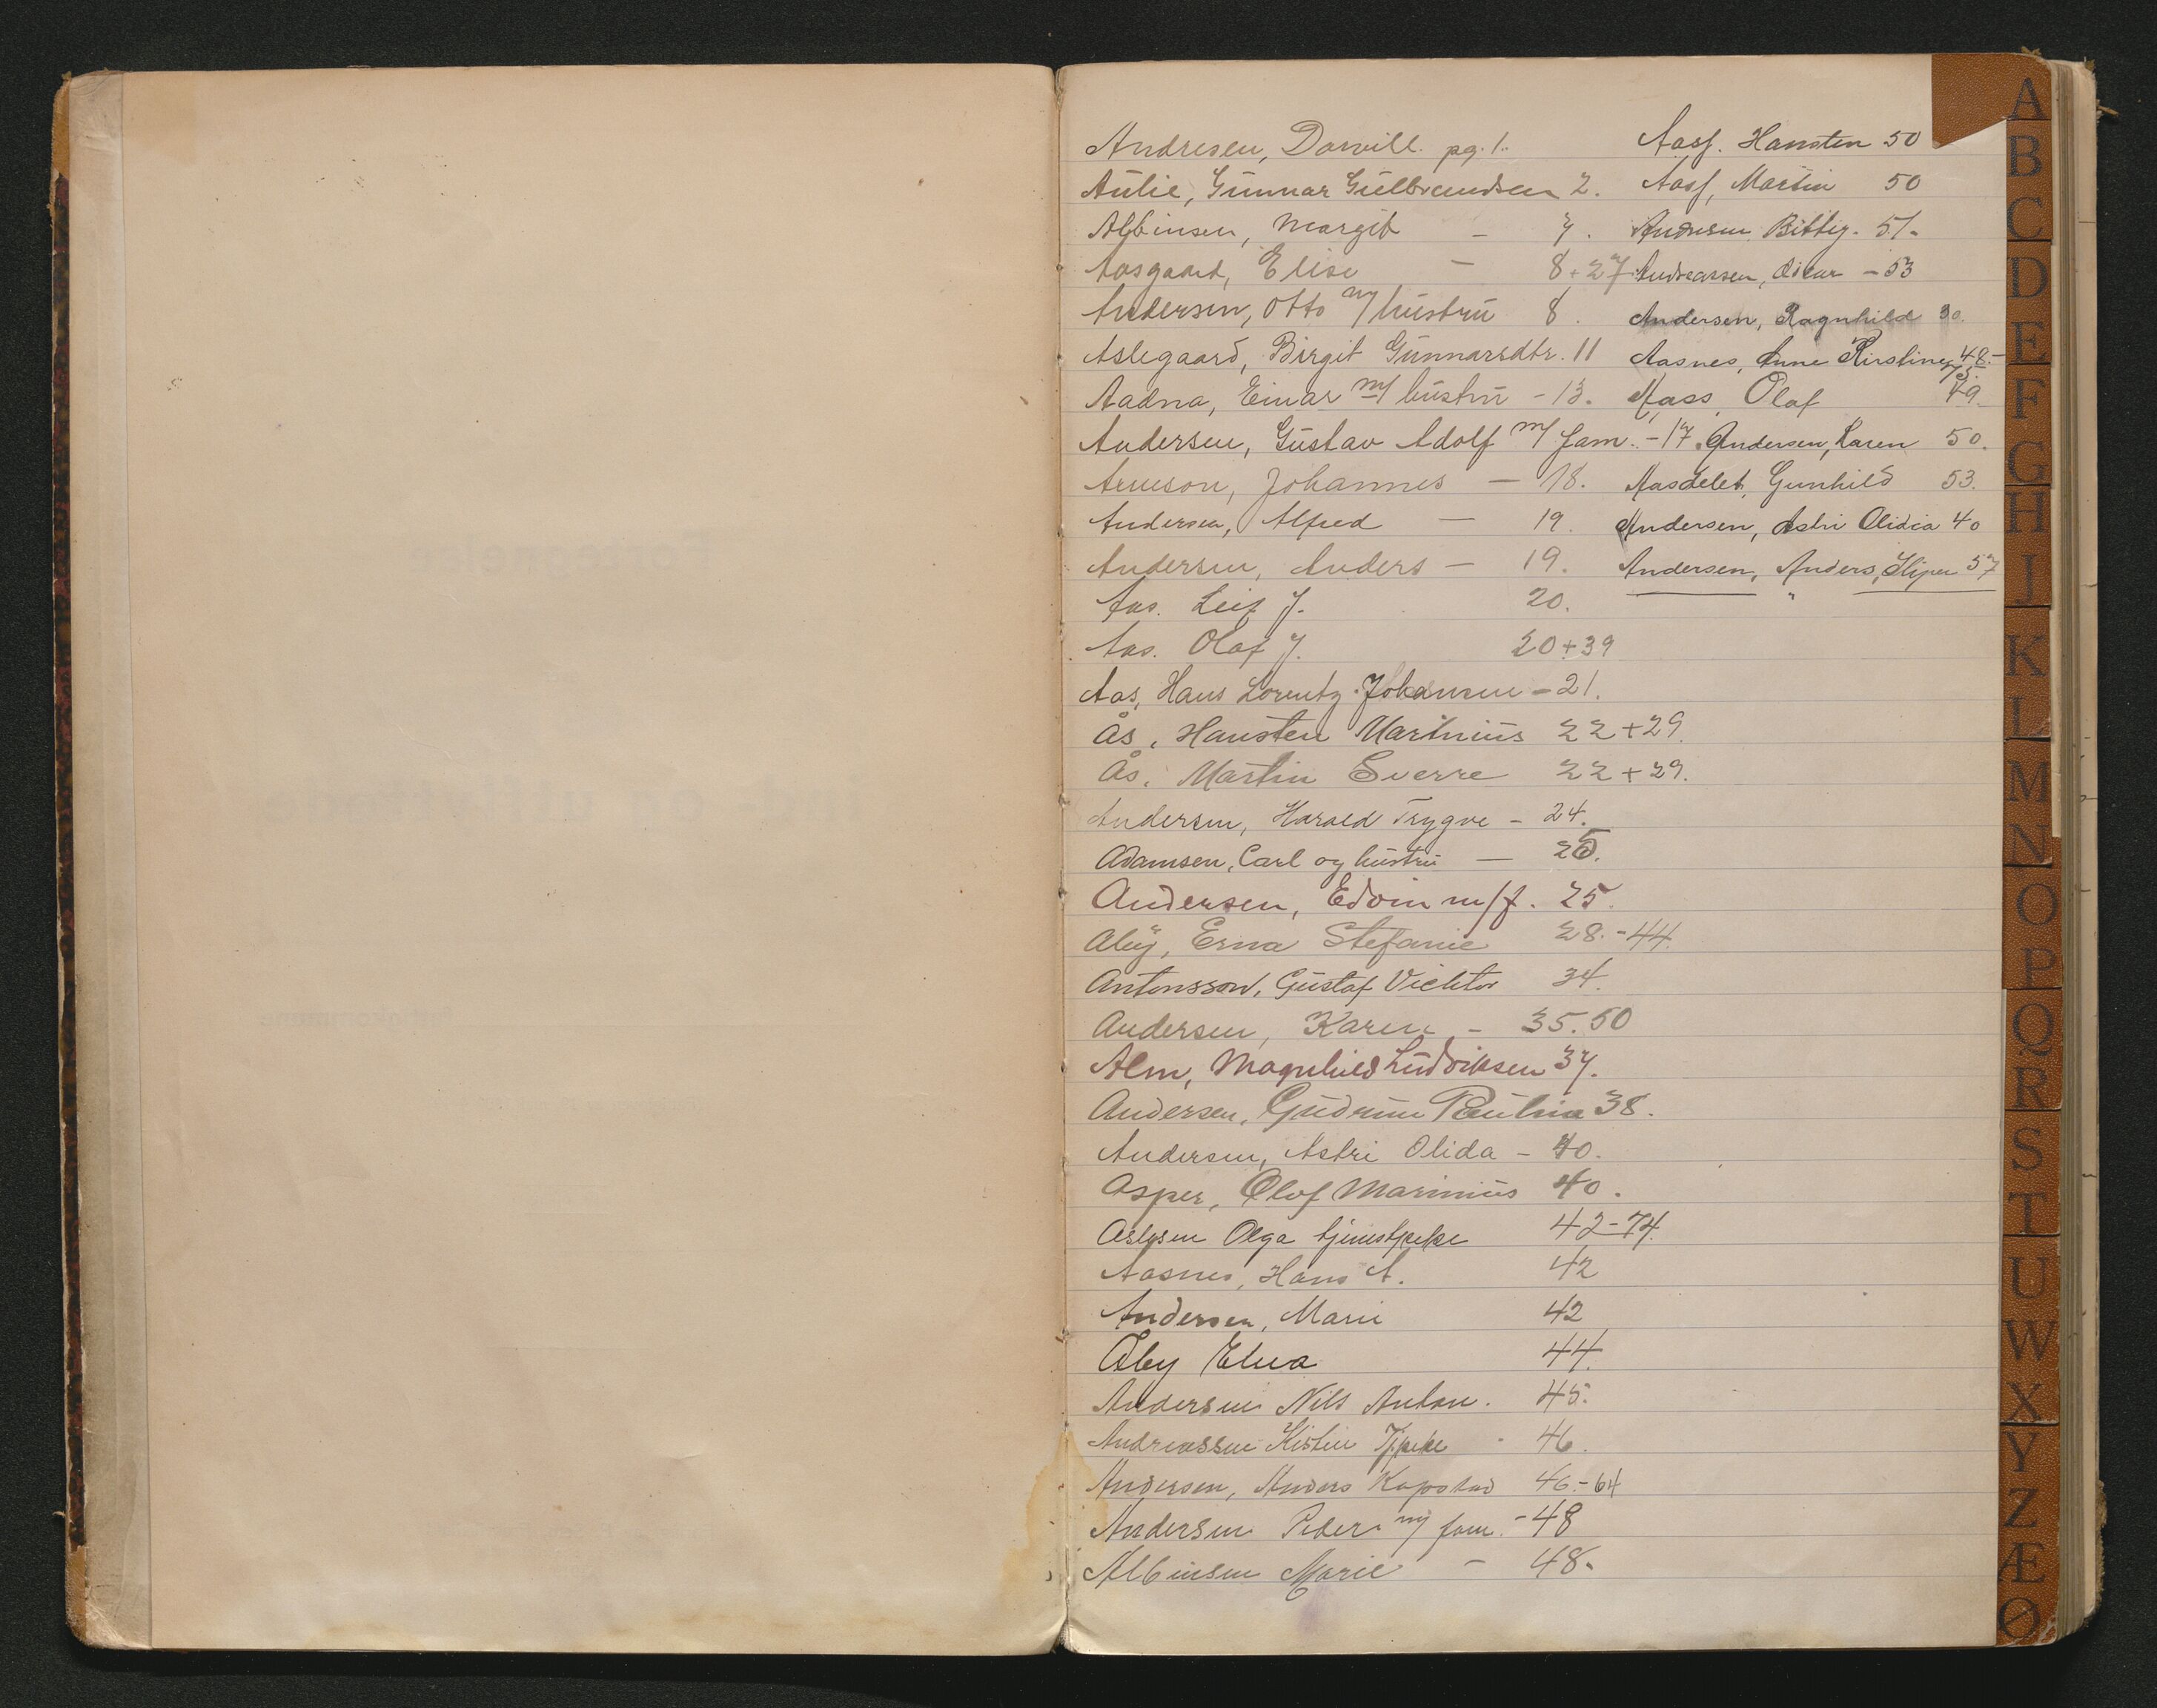 Andresen, Dorvill. pg. 1.
Aulie, Gunnar Gulbrandsen 2.
Albinsen, Margit - 7.
Aasgaard, Elise - 8+27
Andersen, Otto m/ hustru 8.
Aslegaard, Birgit Gunnarsdtr. 11
Aadna, Einar m/ hustru - 13.
Andersen, Gustav Adolf m/ fam. - 17.
Arneson, Johannes - 18.
Andersen, Alfred - 19.
Andersen, Anders - 19.
Aas. Leif J. 20.
Aas. Olaf J. 20+39
Aas, Hans Lorentz Johansen - 21.
Ås, Hansten Martinius 22+29.
Ås, Martin Sverre 22+29.
Andersen, Harald Trygve - 24.
Adamsen, Carl og hustru - 25.
Andersen, Edvin m/f. 25.
Aby, Erna Stefanie 28.-44.
Antonsson, Gustaf Vicktor 34.
Andersen, Karen - 35. 50
Alm, Magnhild Ludviksen 37.
Andersen, Gudrun Paulina 38.
Andersen, Astri Olida - 40.
Asper, Olof Marinius 40.
Aslesen Olga tjenestpike 42-74.
Aasnes, Hans A. 42
Andersen, Marie 42
Åby Elna 44.
Andersen Nils Anton. 45.
Andreassen Kistin Tjpike - 46.
Andersen, Anders Kopstad 46.-64
Andersen Peder m/ fam. - 48
Albinsen Marie - 48.
Aass. Hansten 50
Aass, Martin 50
Andersen Bitty. 51.
Andreassen, Oscar - 53
Andersen, Ragnhild 30.
Aasnes, Anne Kirstine 48.-
75.
Aass, Olaf 49.
Andersen, Karen 50.
Aasdelet, Gunhild 53.
Andersen, Astri Olidia 40
Andersen, Anders, 57
A
B
C
D
E
F
G
H
I
K
L
M
N
O
P
Q
R
S
T
U
W
X
Y
Z
Æ
Ø